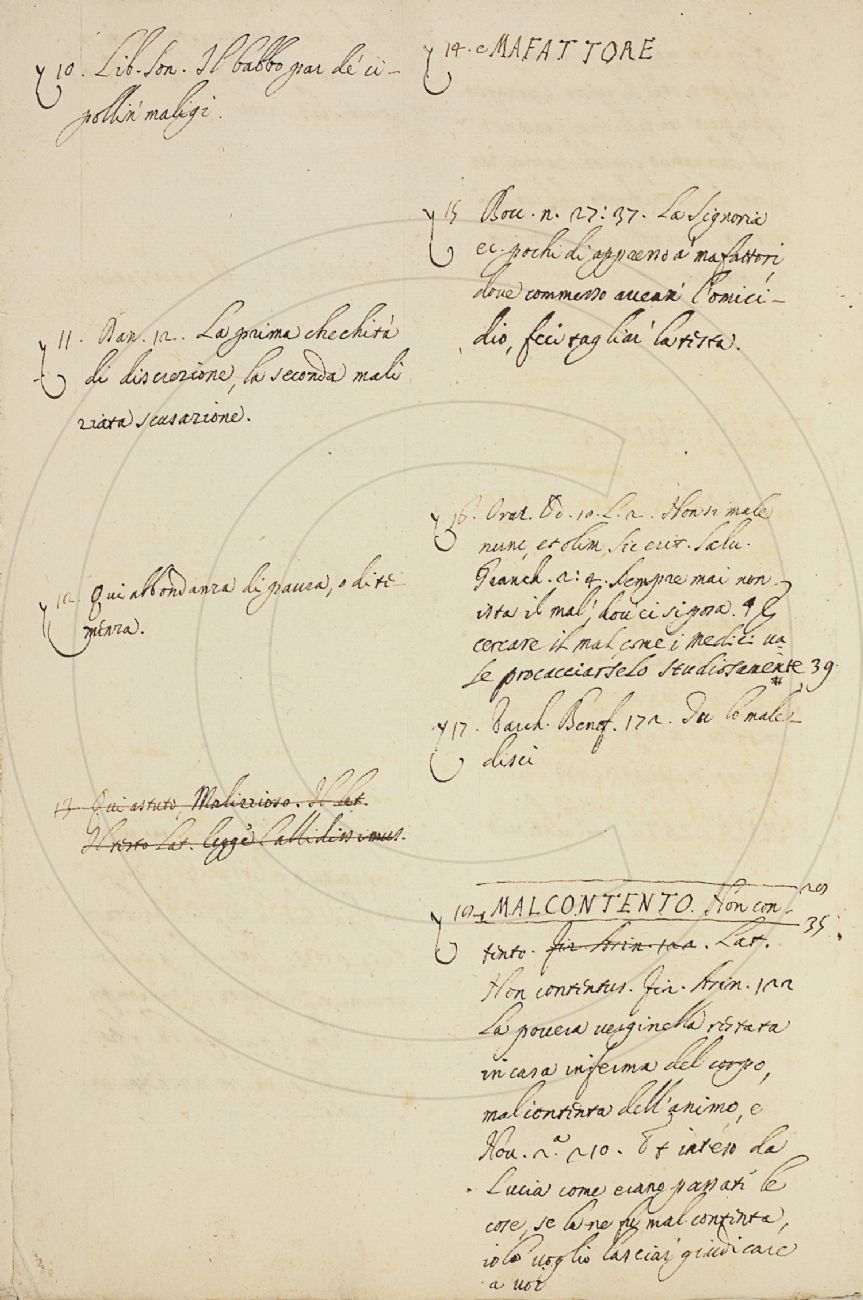 10. Lib. Son. Il babbo par de' ci-
pollin' maligi.
11. Dan. 12. La prima chechità
di discrezione, la seconda mali
ziata scusazione.
12. Qui abbondanza di paura, o di te-
menza.
13 Qui astuto, Malizzioso. Il Lat.
Il testo Lat. legge Callidissimus.
14. c MAFATTORE
15 Bocc. n. 27: 37. La Signoria
ec. pochi dì appresso a' mafattori,
dove commesso avean' l'omici-
dio, feci tagliar' la testa.
16. Oraz. Od. 10. L. 2. Non si male
nunc, et olim, sic erit. Salu.
Granch. 2: 4. Sempre mai non
ista il mal' dov' ci si posa. 4
cercare il mal come i medici va-
le procacciarselo studiosamente 39
17. Varch. Benef. 172. Du le male
disci
19 MALCONTENTO. Non con- 29
tento. Fir. Asin. 122. Lat. 35
Non contentus. Fir. Asin. 122
La povera verginella restata
in casa inferma del corpo,
malcontenta dell'animo, e
Nov. 2.ª 210. Et inteso da
Lucia come erano passati le
cose, se la ne fu mal contenta,
io lo voglio lasciar giudicare
a voi